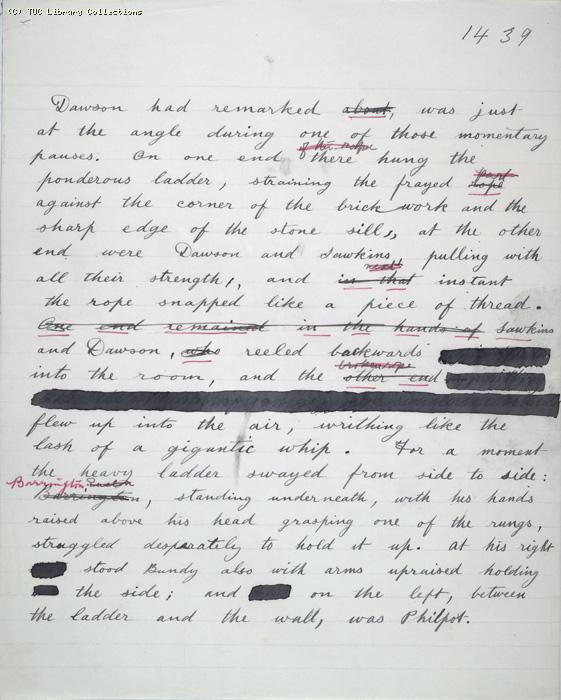 (C) TUC Library Collections
1439
Dawson had remarked about, was just
at the angle during one of those momentary
pauses. On one end of the rope there hung the
ponderous ladder, straining the frayed part rope
against the corner of the brickwork and the
sharp edge of the stone sill, at the other
end were Dawson and Sawkins pulling with
all their strength, and next in that instant
the rope snapped like a piece of thread.
One end remained in the hands of Sawkins
and Dawson, who reeled backwards
into the room, and the broken rope other end
flew up into the air, writhing like the
lash of a gigantic whip. For a moment
the heavy ladder swayed from side to side:
Barrington,
Barrington, standing underneath, with his hands
raised above his head grasping one of the rungs,
struggled desperately to hold it up. At his right
stood Bundy also with arms upraised holding
the side; and on the left, between
the ladder and the wall, was Philpot.